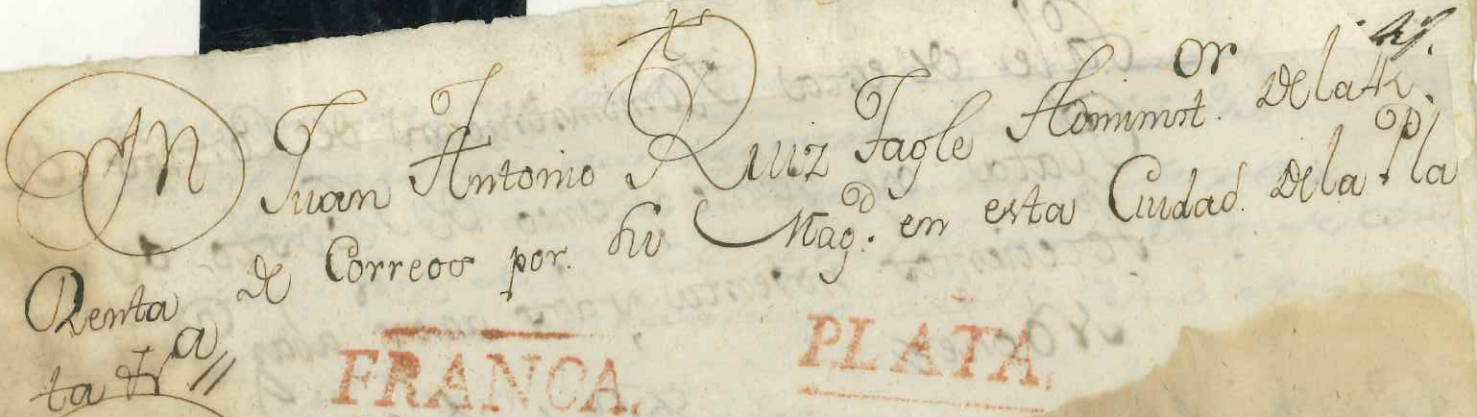 Dn Juan Antonio Ruiz Tagle Administ.or dela Rl.
Renta de Correos por. Su Mag.d en esta Ciudad. dela Pla
ta &a //
FRANCA. PLATA.